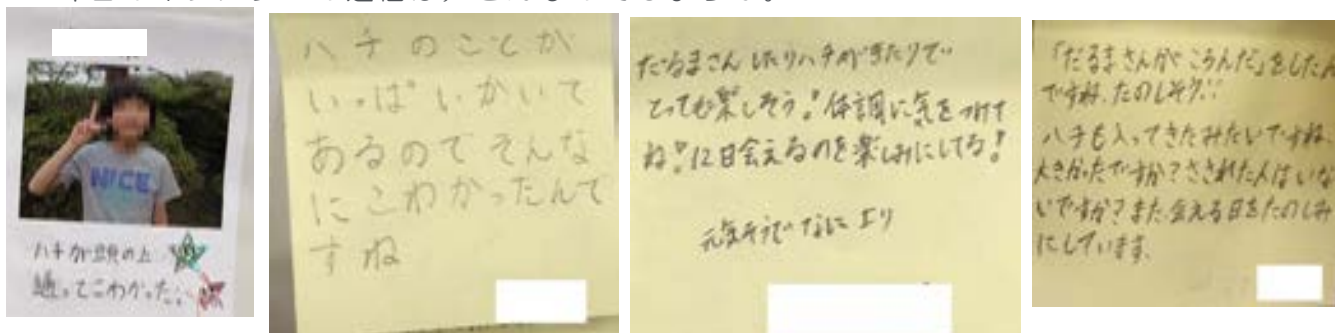 NICE
ハチが頭の上
通ってこわかった。
ハチのことが
いっぱいかいて
あるのでそんな
にこわかったんで
すね
だるまさんしたりハチがきたりで
とっても楽しそう!体調に気をつけて
ね!12日会えるのを楽しみにしてる!
元気そうでなにより
「だるまさんがころんだ」をしたん
ですね、たのしそう!
ハチも入ってきたみたいですね、
大きかったですか?さされた人はいな
いですか?また会える日をたのしみ
にしています。